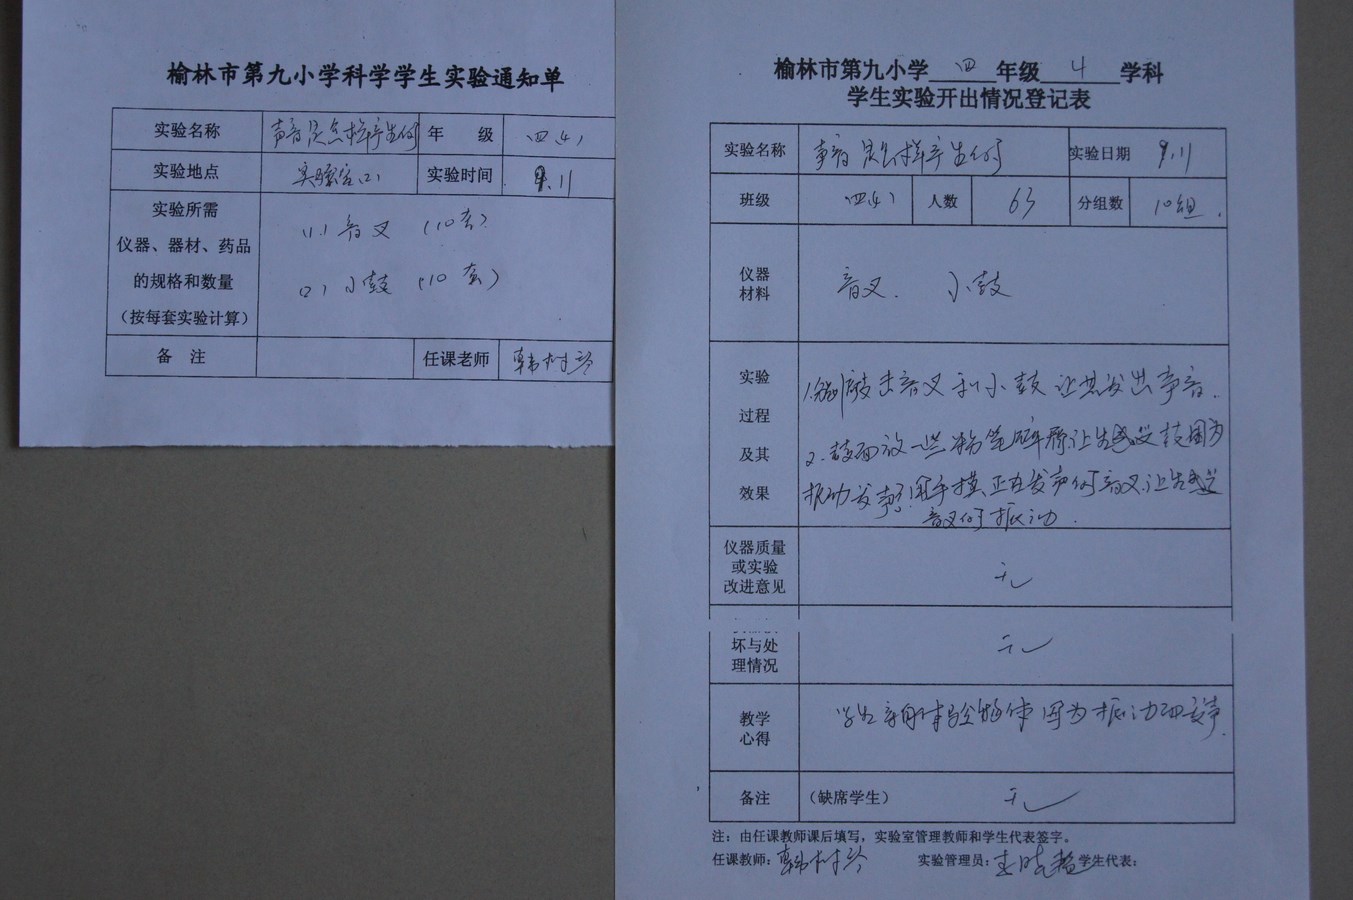 榆林市第九小学科学学生实验通知单
实验名称 声音是怎样产生的 年 级 四(4)
实验地点 实验室(2) 实验时间 9.11
实验所需
仪器、器材、药品
的规格和数量
（按每套实验计算）
(1) 音叉 (10套)
(2) 小鼓 (10套)
备 注 任课老师 韩树琴
榆林市第九小学 四 年级 4 学科
学生实验开出情况登记表
实验名称 声音是怎样产生的 实验日期 9.11
班级 四(4) 人数 63 分组数 10组.
仪器
材料
音叉. 小鼓
实验
过程
及其
效果
1.分别敲击音叉和小鼓让其发出声音.
2.鼓面放一些粉笔碎屑让生感受鼓因为
振动发声;用手摸正在发声的音叉让生感受
音叉的振动.
仪器质量
或实验
改进意见
无
坏与处
理情况
无
教学
心得
学生亲自体验物体因为振动而发声.
备注 （缺席学生） 无
注：由任课教师课后填写，实验室管理教师和学生代表签字。
任课教师：韩树琴 实验管理员： 学生代表：